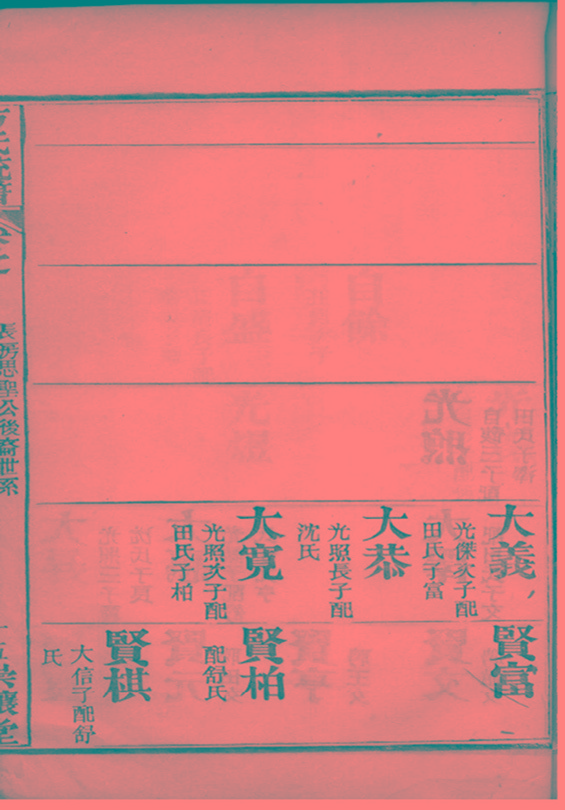 大義
光傑次子配
田氏子富
大恭
光照長子配
沈氏
大寬
光照次子配
田氏子柏
賢富
賢柏
配舒氏
賢棋
大信子配舒
氏
長房思聖公後裔世系